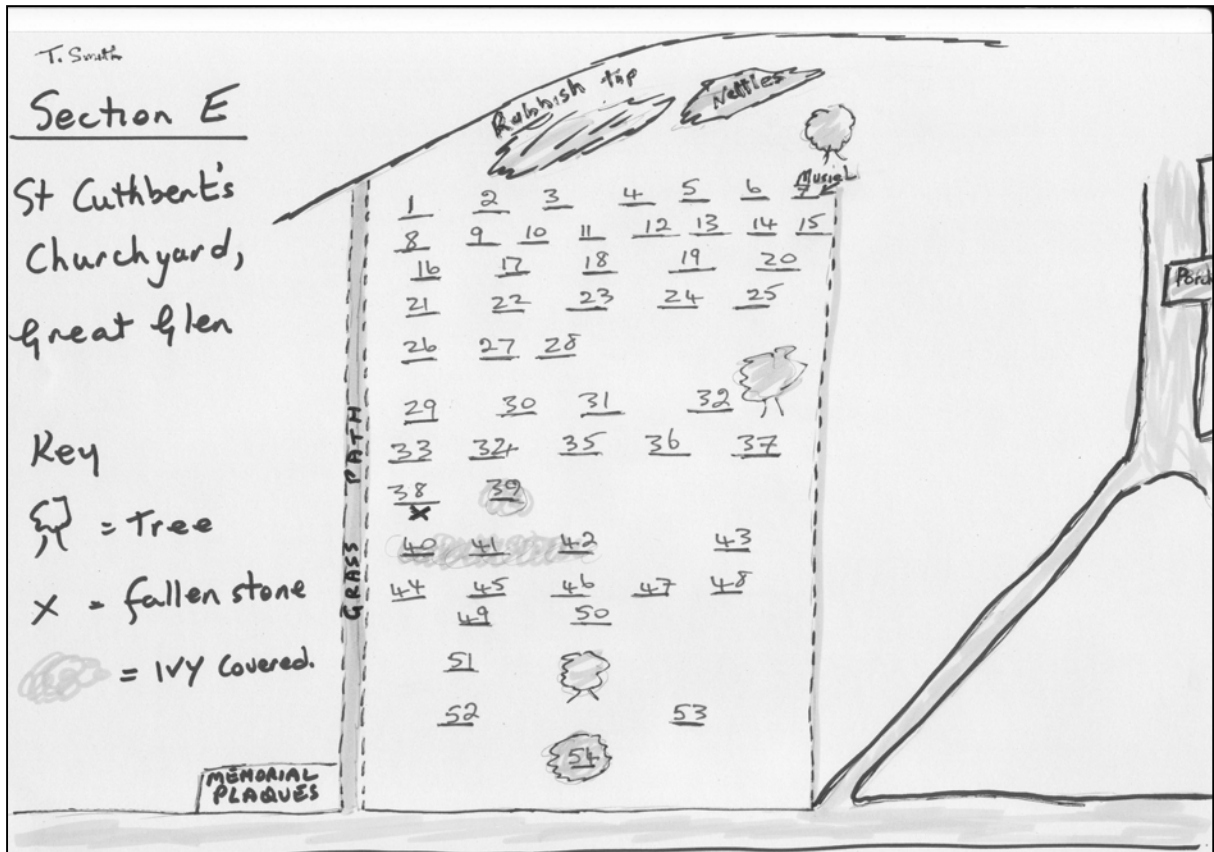 T. Smith
Section E
St Cuthbert's
Churchyard,
Great Glen
Key
= Tree
X = fallen stone
= IVY Covered.
MEMORIAL
PLAQUES
GRASS PATH
Rubbish tip
Nettles
Muriel
Porch
1 2 3 4 5 6 7
8 9 10 11 12 13 14 15
16 17 18 19 20
21 22 23 24 25
26 27 28
29 30 31 32
33 34 35 36 37
38 39
X
40 41 42 43
44 45 46 47 48
49 50
51
52 53
54